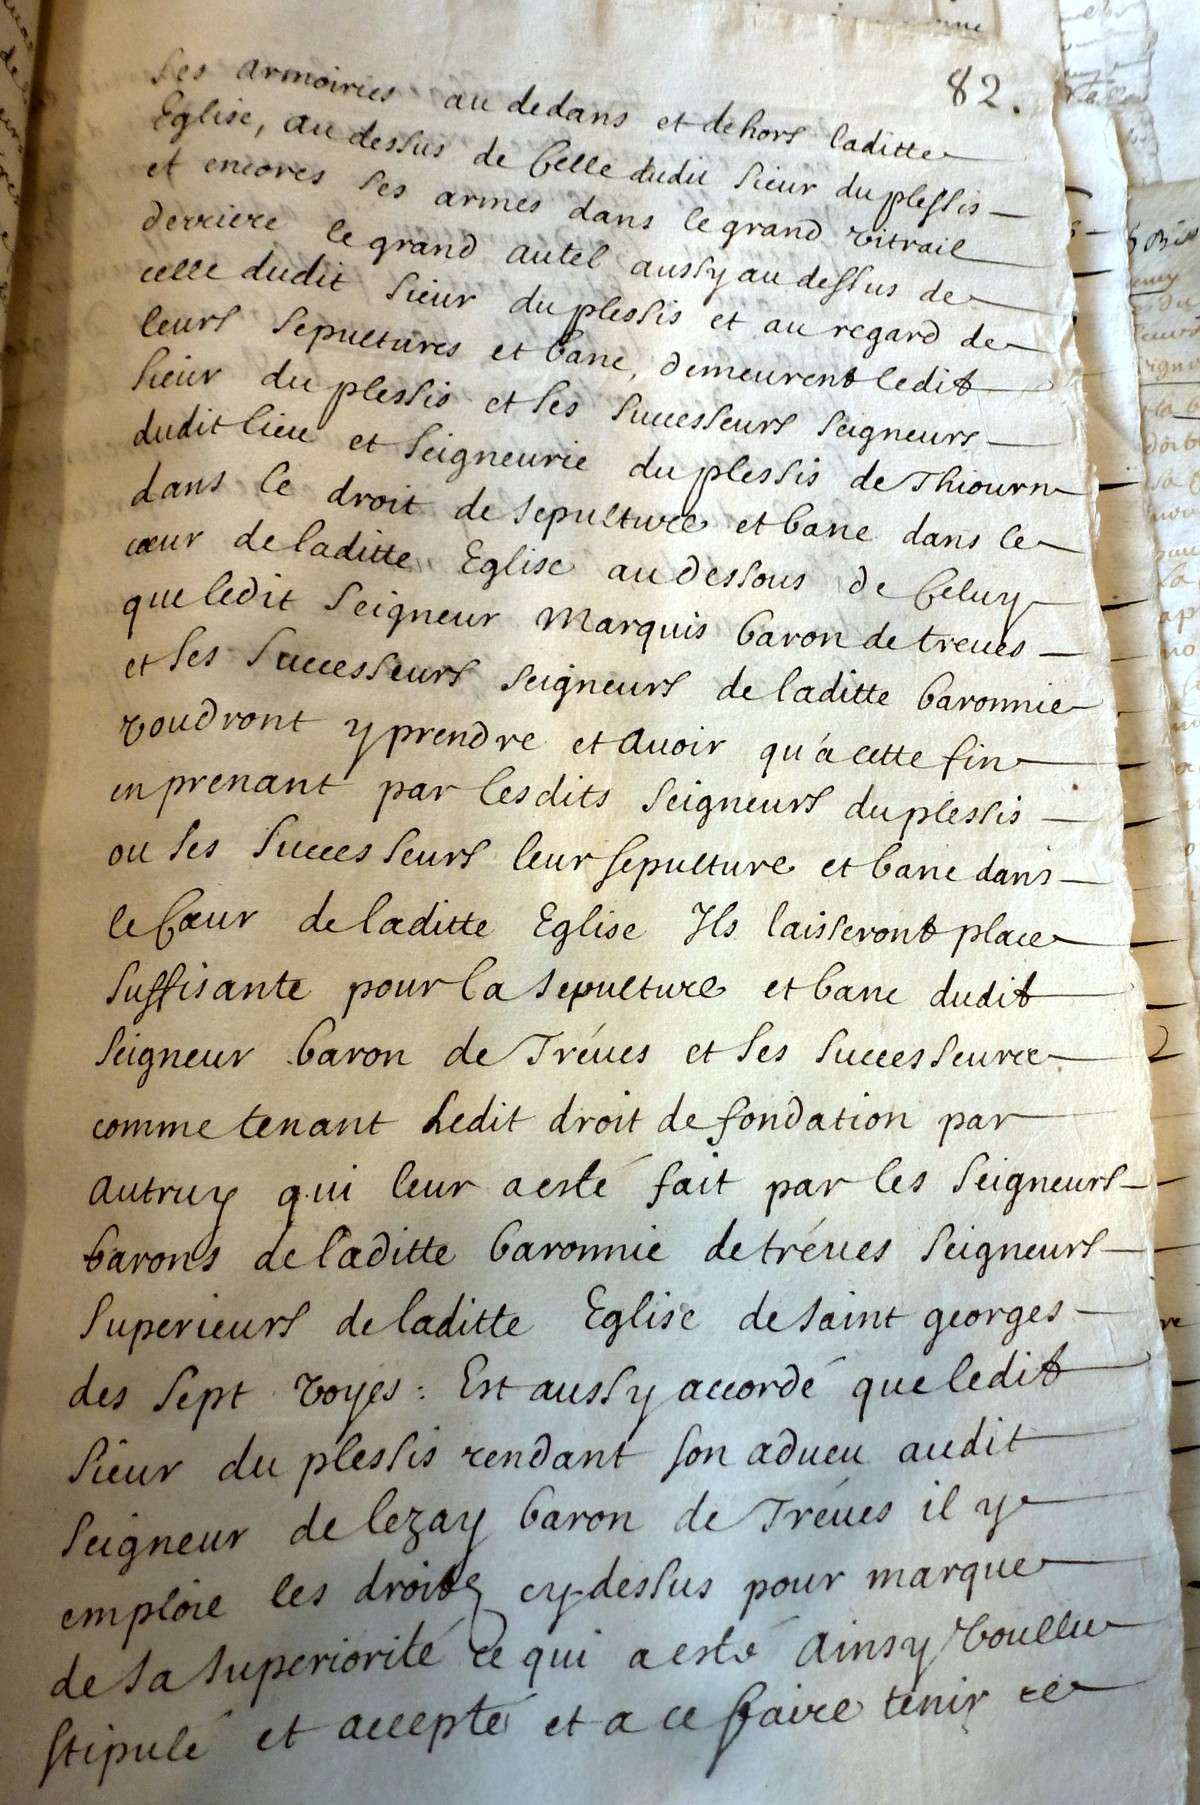 82.
ses armoiries au dedans et dehors laditte
Eglise, au dessus de celle dudit sieur du plessis
et encores ses armes dans le grand vitrail
derriere le grand autel aussy au dessus de
celle dudit sieur du plessis et au regard de
leurs sepultures et banc, demeurent ledit
sieur du plessis et ses successeurs seigneurs
dudit lieu et seigneurie du plessis de Thiourn
dans le droit de sepulture et banc dans le
cœur de laditte Eglise au dessous de celuy
que ledit seigneur marquis baron de treues
et ses successeurs seigneurs de laditte baronnie
voudront y prendre et auoir qu'a cette fin
en prenant par lesdits seigneurs du plessis
ou ses successeurs leur sepulture et banc dans
le cœur de laditte Eglise Ils laisseront place
suffisante pour la sepulture et banc dudit
seigneur baron de Tréues et ses successeurs
comme tenant ledit droit de fondation par
autruy qui leur a esté fait par les seigneurs
barons de laditte baronnie de tréues seigneurs
superieurs de laditte Eglise de saint georges
des sept voyes : Est aussy accordé que ledit
sieur du plessis rendant son adueu audit
seigneur de lezay baron de Tréues il y
emploie les droits cy dessus pour marque
de sa superiorité ce qui a esté ainsy voullu
stipulé et accepté et a ce faire tenir et